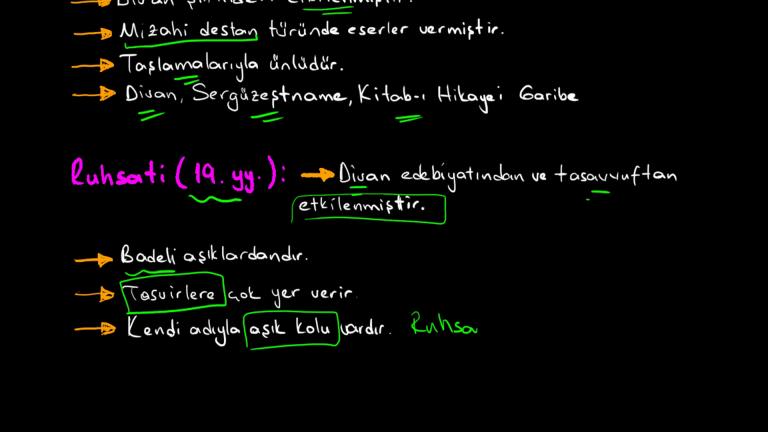 → Divan şiirinden etkilenmiştir.
→ Mizahi destan türünde eserler vermiştir.
→ Taşlamalarıyla ünlüdür.
→ Divan, Sergüzeştname, Kitab-ı Hikaye'i Garibe
Ruhsati (19. yy.): → Divan edebiyatından ve tasavvuftan
etkilenmiştir.
→ Badeli aşıklardandır.
→ Tasvirlere çok yer verir.
→ Kendi adıyla aşık kolu vardır. Ruhsa